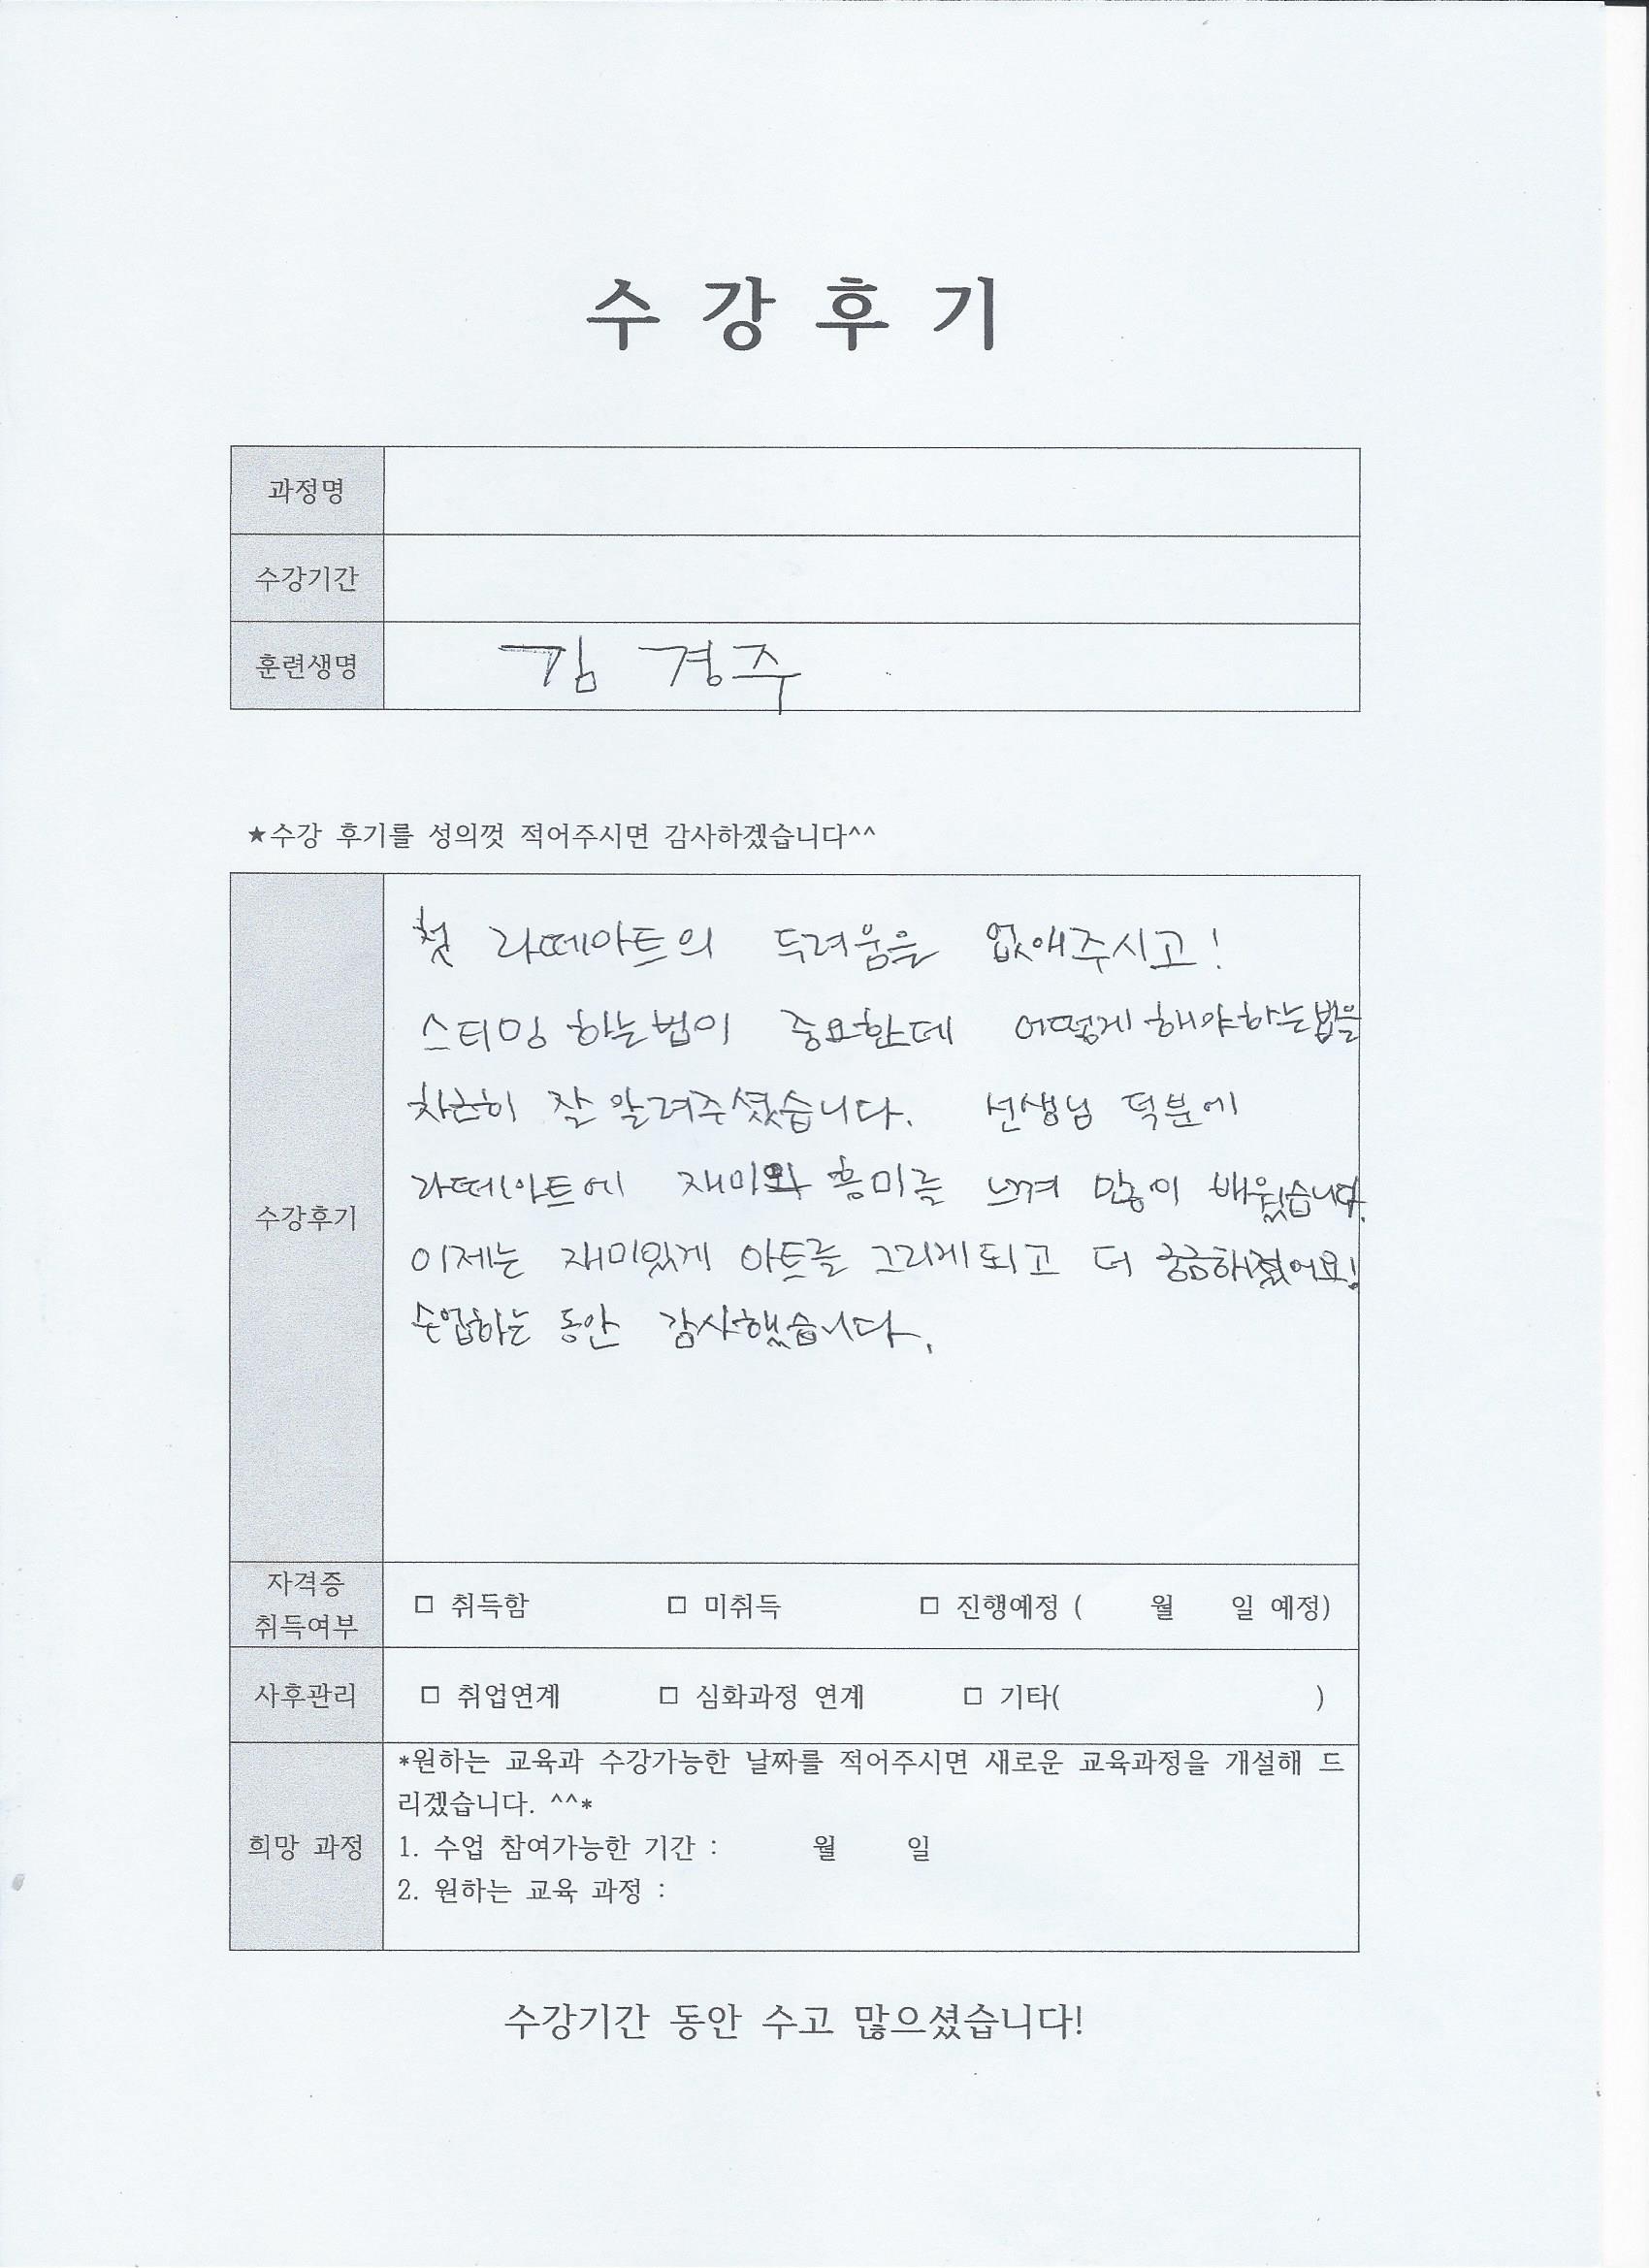 수 강 후 기
과정명
수강기간
훈련생명 김 경주
★수강 후기를 성의껏 적어주시면 감사하겠습니다^^
수강후기
첫 라떼아트의 두려움을 없애주시고!
스티밍 하는법이 중요한데 어떻게해야하는법을
차근히 잘 알려주셨습니다. 선생님 덕분에
라떼아트에 재미와 흥미를 느껴 많이 배웠습니다.
이제는 재미있게 아트를 그리게되고 더 궁금해졌어요!
수업하는 동안 감사했습니다.
자격증
취득여부
□ 취득함 □ 미취득 □ 진행예정 ( 월 일 예정)
사후관리 □ 취업연계 □ 심화과정 연계 □ 기타( )
희망 과정
*원하는 교육과 수강가능한 날짜를 적어주시면 새로운 교육과정을 개설해 드
리겠습니다. ^^*
1. 수업 참여가능한 기간 : 월 일
2. 원하는 교육 과정 :
수강기간 동안 수고 많으셨습니다!